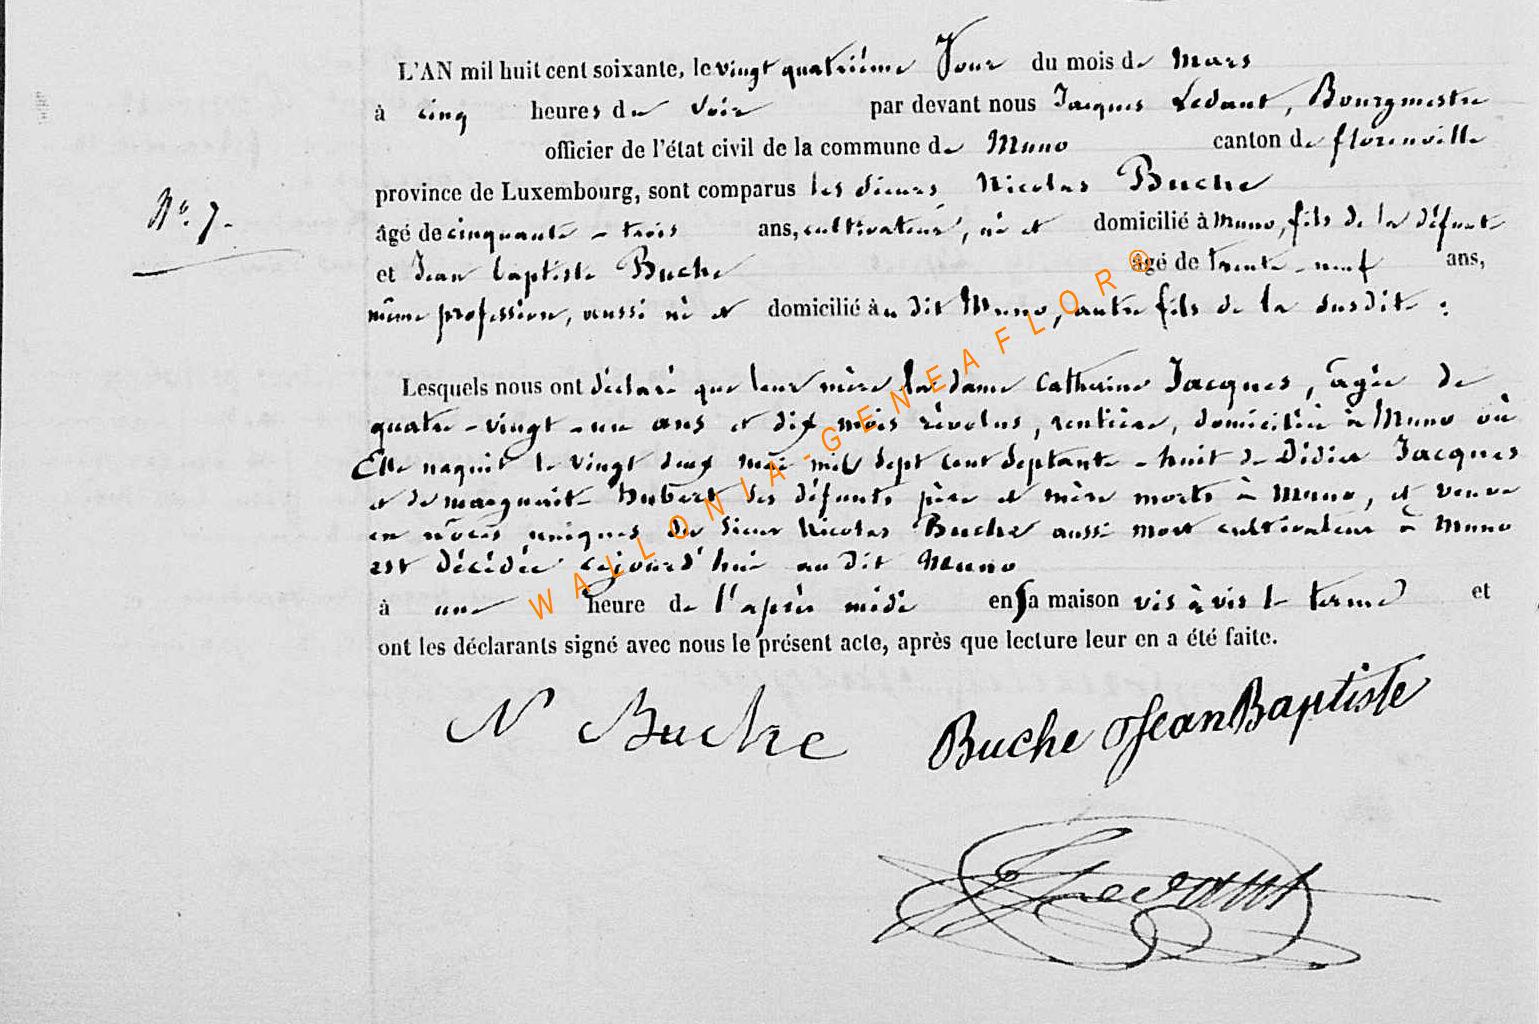 L'AN mil huit cent soixante, le vingt quatrième Jour du mois de Mars
à cinq heures du Soir par devant nous Jacques Ledant, Bourgmestre
officier de l'état civil de la commune de Muno canton de florenville
province de Luxembourg, sont comparus les sieurs Nicolas Buche
N° 7.
âgé de cinquante-trois ans, cultivateur, né et domicilié à Muno, fils de la défunte
et Jean baptiste Buche âgé de trente-neuf ans,
même profession, aussi né et domicilié au dit Muno, autre fils de la susdite :
Lesquels nous ont déclaré que leur mère la dame Catherine Jacques, âgée de
quatre-vingt-un ans et dix mois révolus, rentière, domiciliée à Muno où
Elle naquit le vingt deux Mai mil sept cent septante-huit de Didier Jacques
et de Marguerite hubert ses défunts père et mère morts à Muno, et veuve
en nôces uniques de sieur Nicolas Buche aussi mort cultivateur à Muno
est décédée cejourd'hui au dit Muno
à une heure de l'après midi en sa maison vis à vis le terme et
ont les déclarants signé avec nous le présent acte, après que lecture leur en a été faite.
N Buche Buche Jean Baptiste
Ledant
WALLONIA-GENEAFLOR®